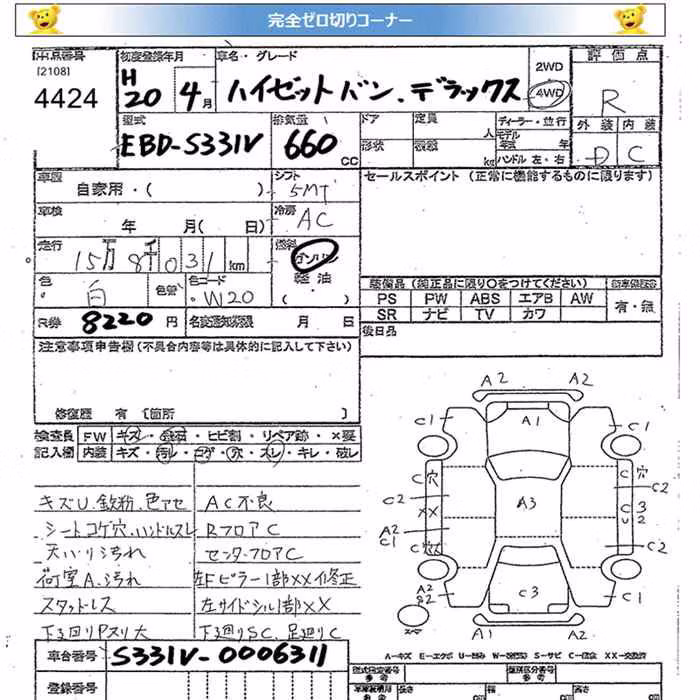 完全ゼロ切りコーナー
出品番号 初度登録年月 車名・グレード 2WD 評価点
[2108] H
4424 20 4月 ハイゼットバン.デラックス 4WD R
型式 排気量 ドア 定員 人 ディーラー・並行 外装 内装
EBD-S331V 660 CC 形状 kg モデル年式 年 D C
ハンドル 左・右
車歴 シフト セールスポイント (正常に機能するものに限ります)
自家用・( ) 5MT
車検 冷房
年 月(日) AC
走行 燃料
15万8千031km ガソリン
軽油
( )
色 色替 色コード 装備品 (純正品に限り○をつけてください)
白 W20 PS PW ABS エアB AW 有・無
SR ナビ TV カワ
R券 8220円 名変通知期限 月 日 後日品
注意事項申告欄 (不具合内容等は具体的に記入して下さい)
修復歴 有 [箇所 ]
検査員 FW キズ・飛石・ヒビ割・リペア跡・×要
記入欄 内装 キズ・汚レ・コゲ・穴・スレ・キレ・破レ
キズU.鉄粉.色アセ AC不良
シートコゲ穴.ハンドルスレ RフロアC
天井汚れ センターフロアC
荷室A.汚れ 左Fピラー1部××修正
スタッドレス 左サイドシル1部××
下廻りPスリ大 下廻りSC.足廻りC
A2 A2
C1 A1 C1
C 穴 C 穴
C2 C2
×× A3 C 3
U 2
A2
C1 C2
A2
B2 C3 C1
A1 A2
A-キズ E-エクボ U-凹み W-波 S-サビ C-腐食 XX-交換済
車台番号 S331V-0006311
登録番号 型式指定番号 類別区分番号
参考 長さ 幅 高さ